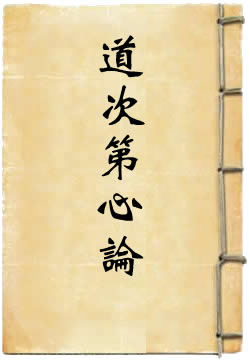 道次第心論